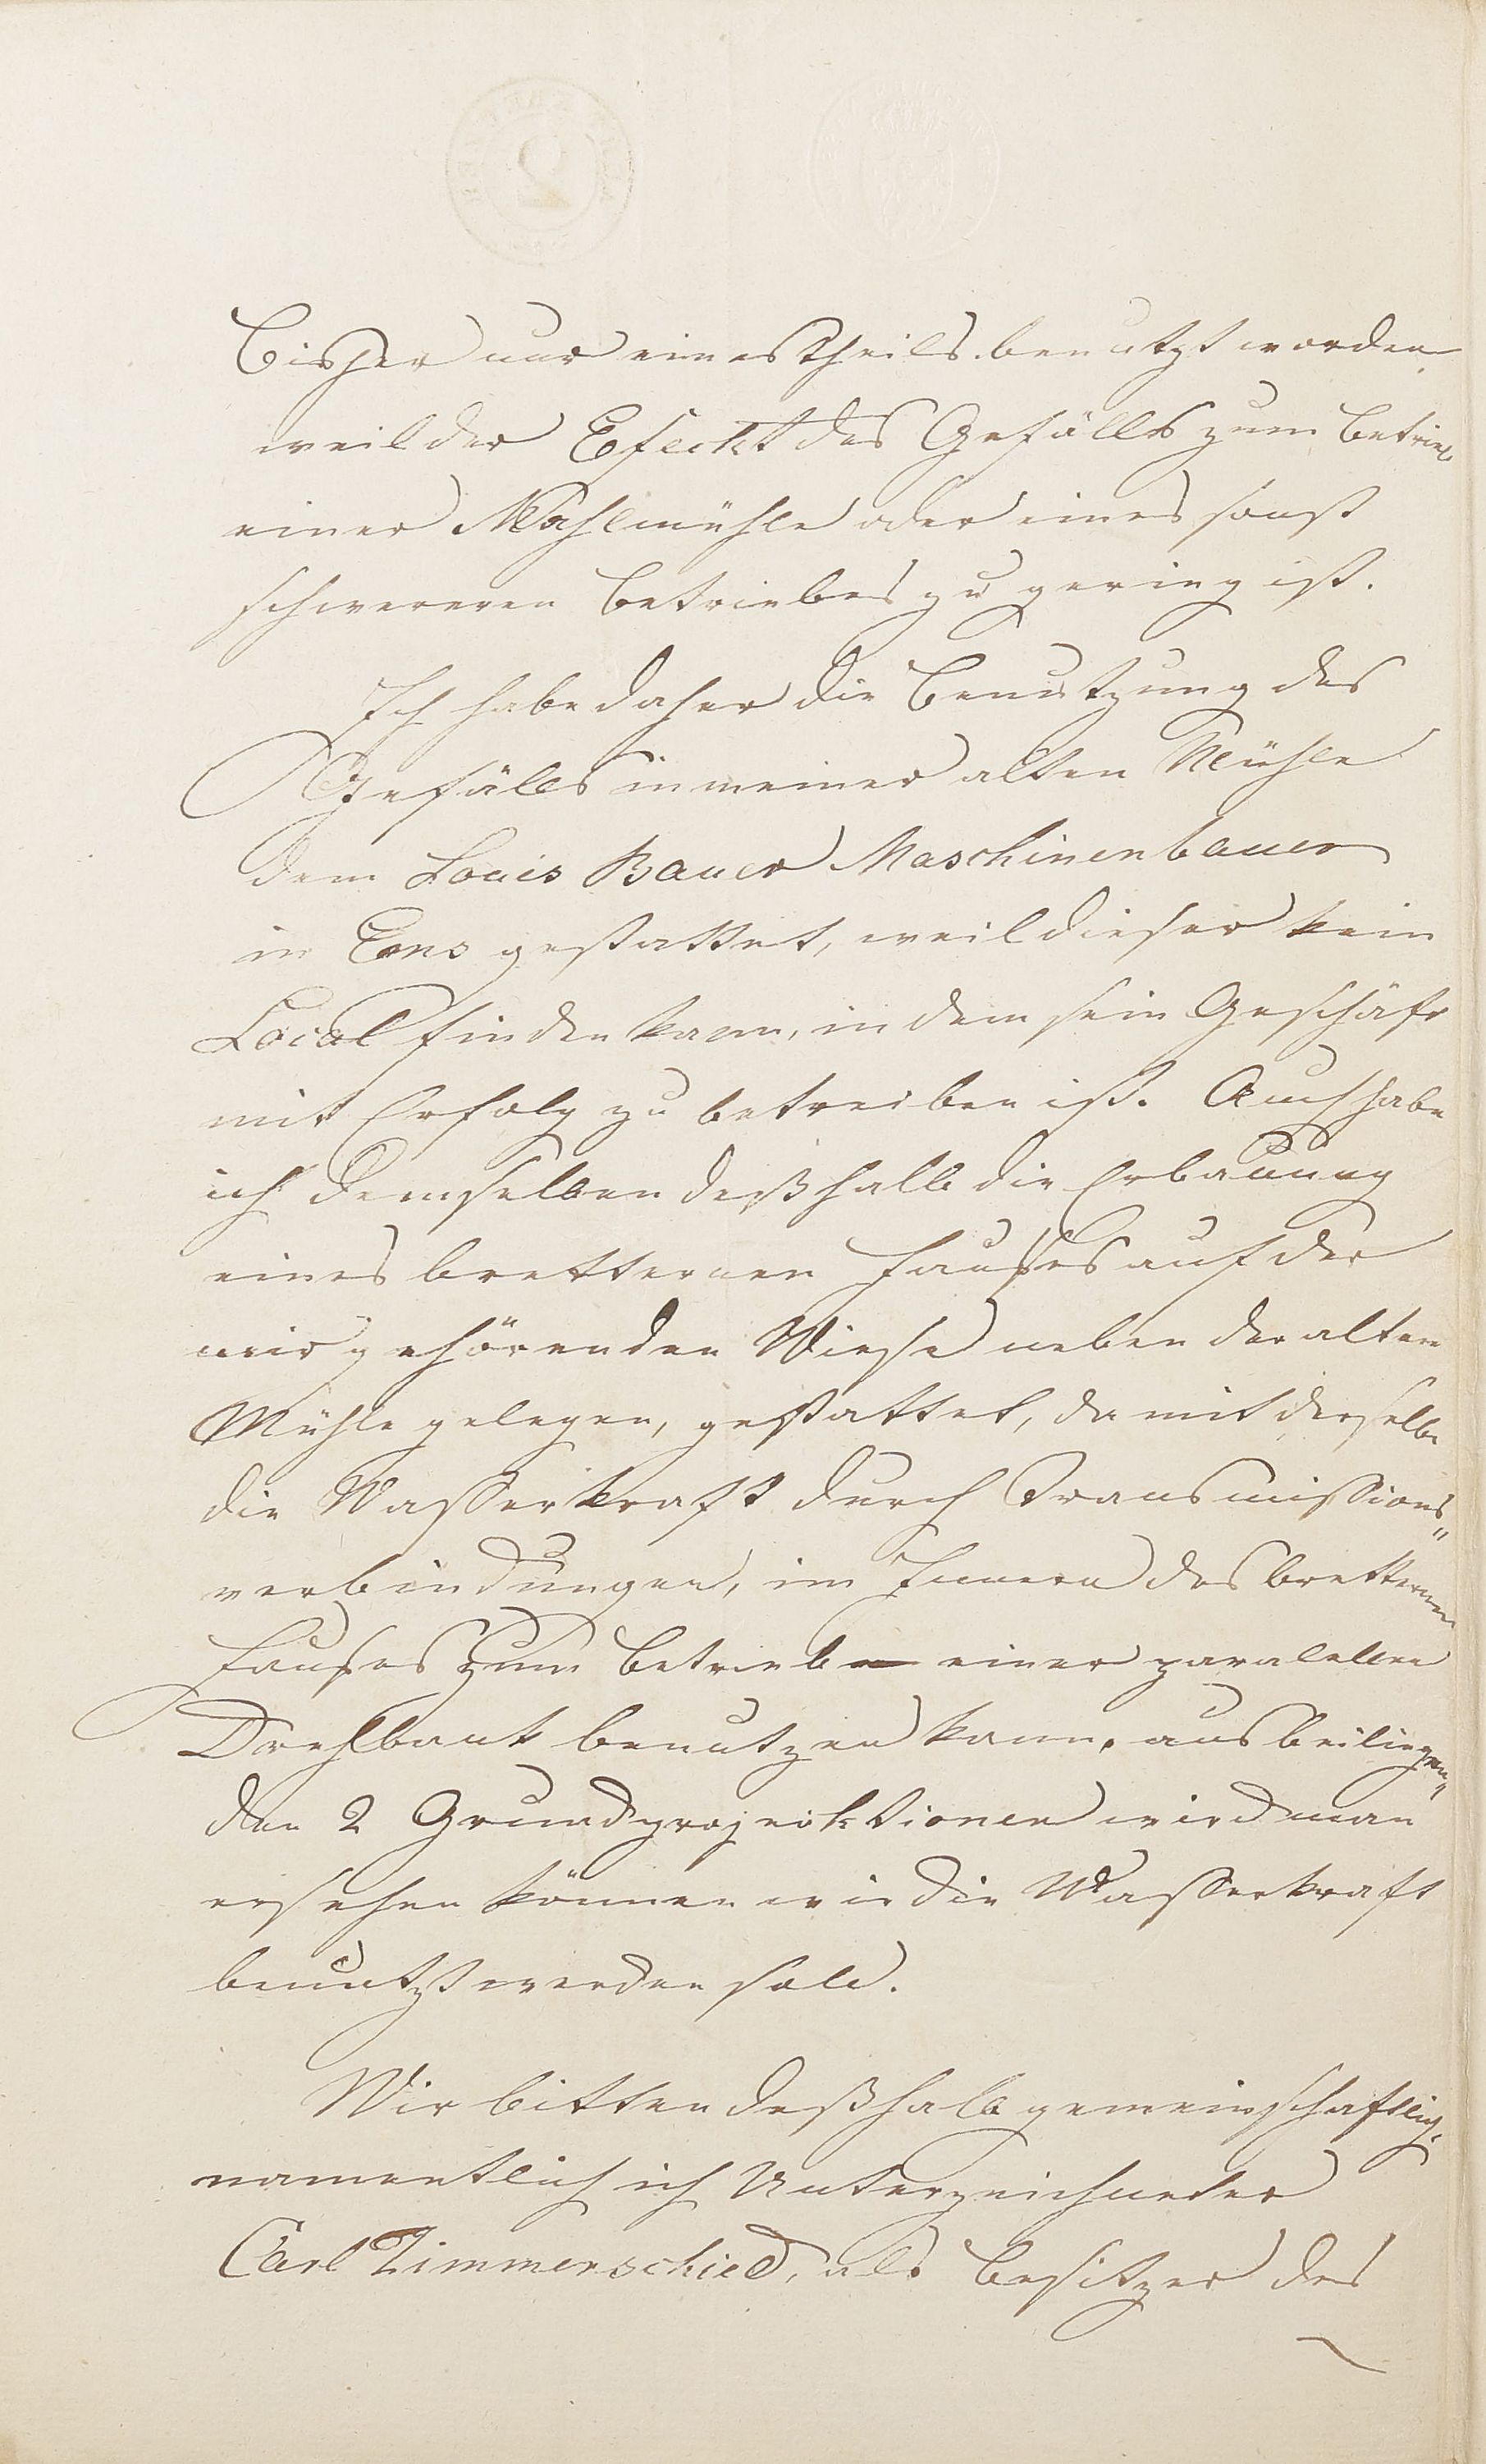 bisher nur eines Theils benutzt worden
weil der Efeckt des Gefälls zum Betrieb
einer Mahlmühle oder eines sonst
schwereren Betriebes zu gering ist.
Ich habe daher die Benutzung des
Gefälls in meiner alten Mühle
dem Louis Bauer Maschinenbauer
in Ems gestattet, weil dieser kein
Local finden kann, in dem sein Geschäft
mit Erfolg zu betreiben ist. Auch habe
ich demselben deßhalb die Erbauung
eines bretternen Hauses auf der
mir gehörenden Wiese neben der alten
Mühle gelegen, gestattet, damit derselbe
die Wasserkraft durch Transmissions„
verbindungen, im Innern des bretternen
Hauses zum Betrieb einer paralellen
Drehbank benutzen kann. aus beiliegen„
den 2 Grundprojecktionen wird man
ersehen können wie die Wasserkraft
benutzt werden soll.
Wir bitten deßhalb gemeinschaftlich,
namentlich ich Unterzeichneter
Carl Zimmerschied, als Besitzer des